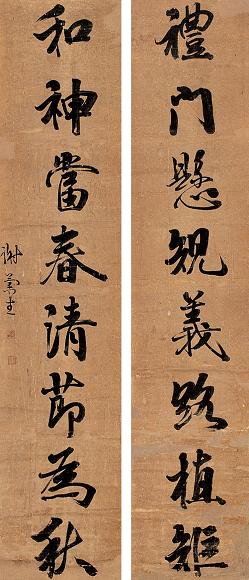 禮門懸規義路植矩
和神當春清節為秋
謝蘭生